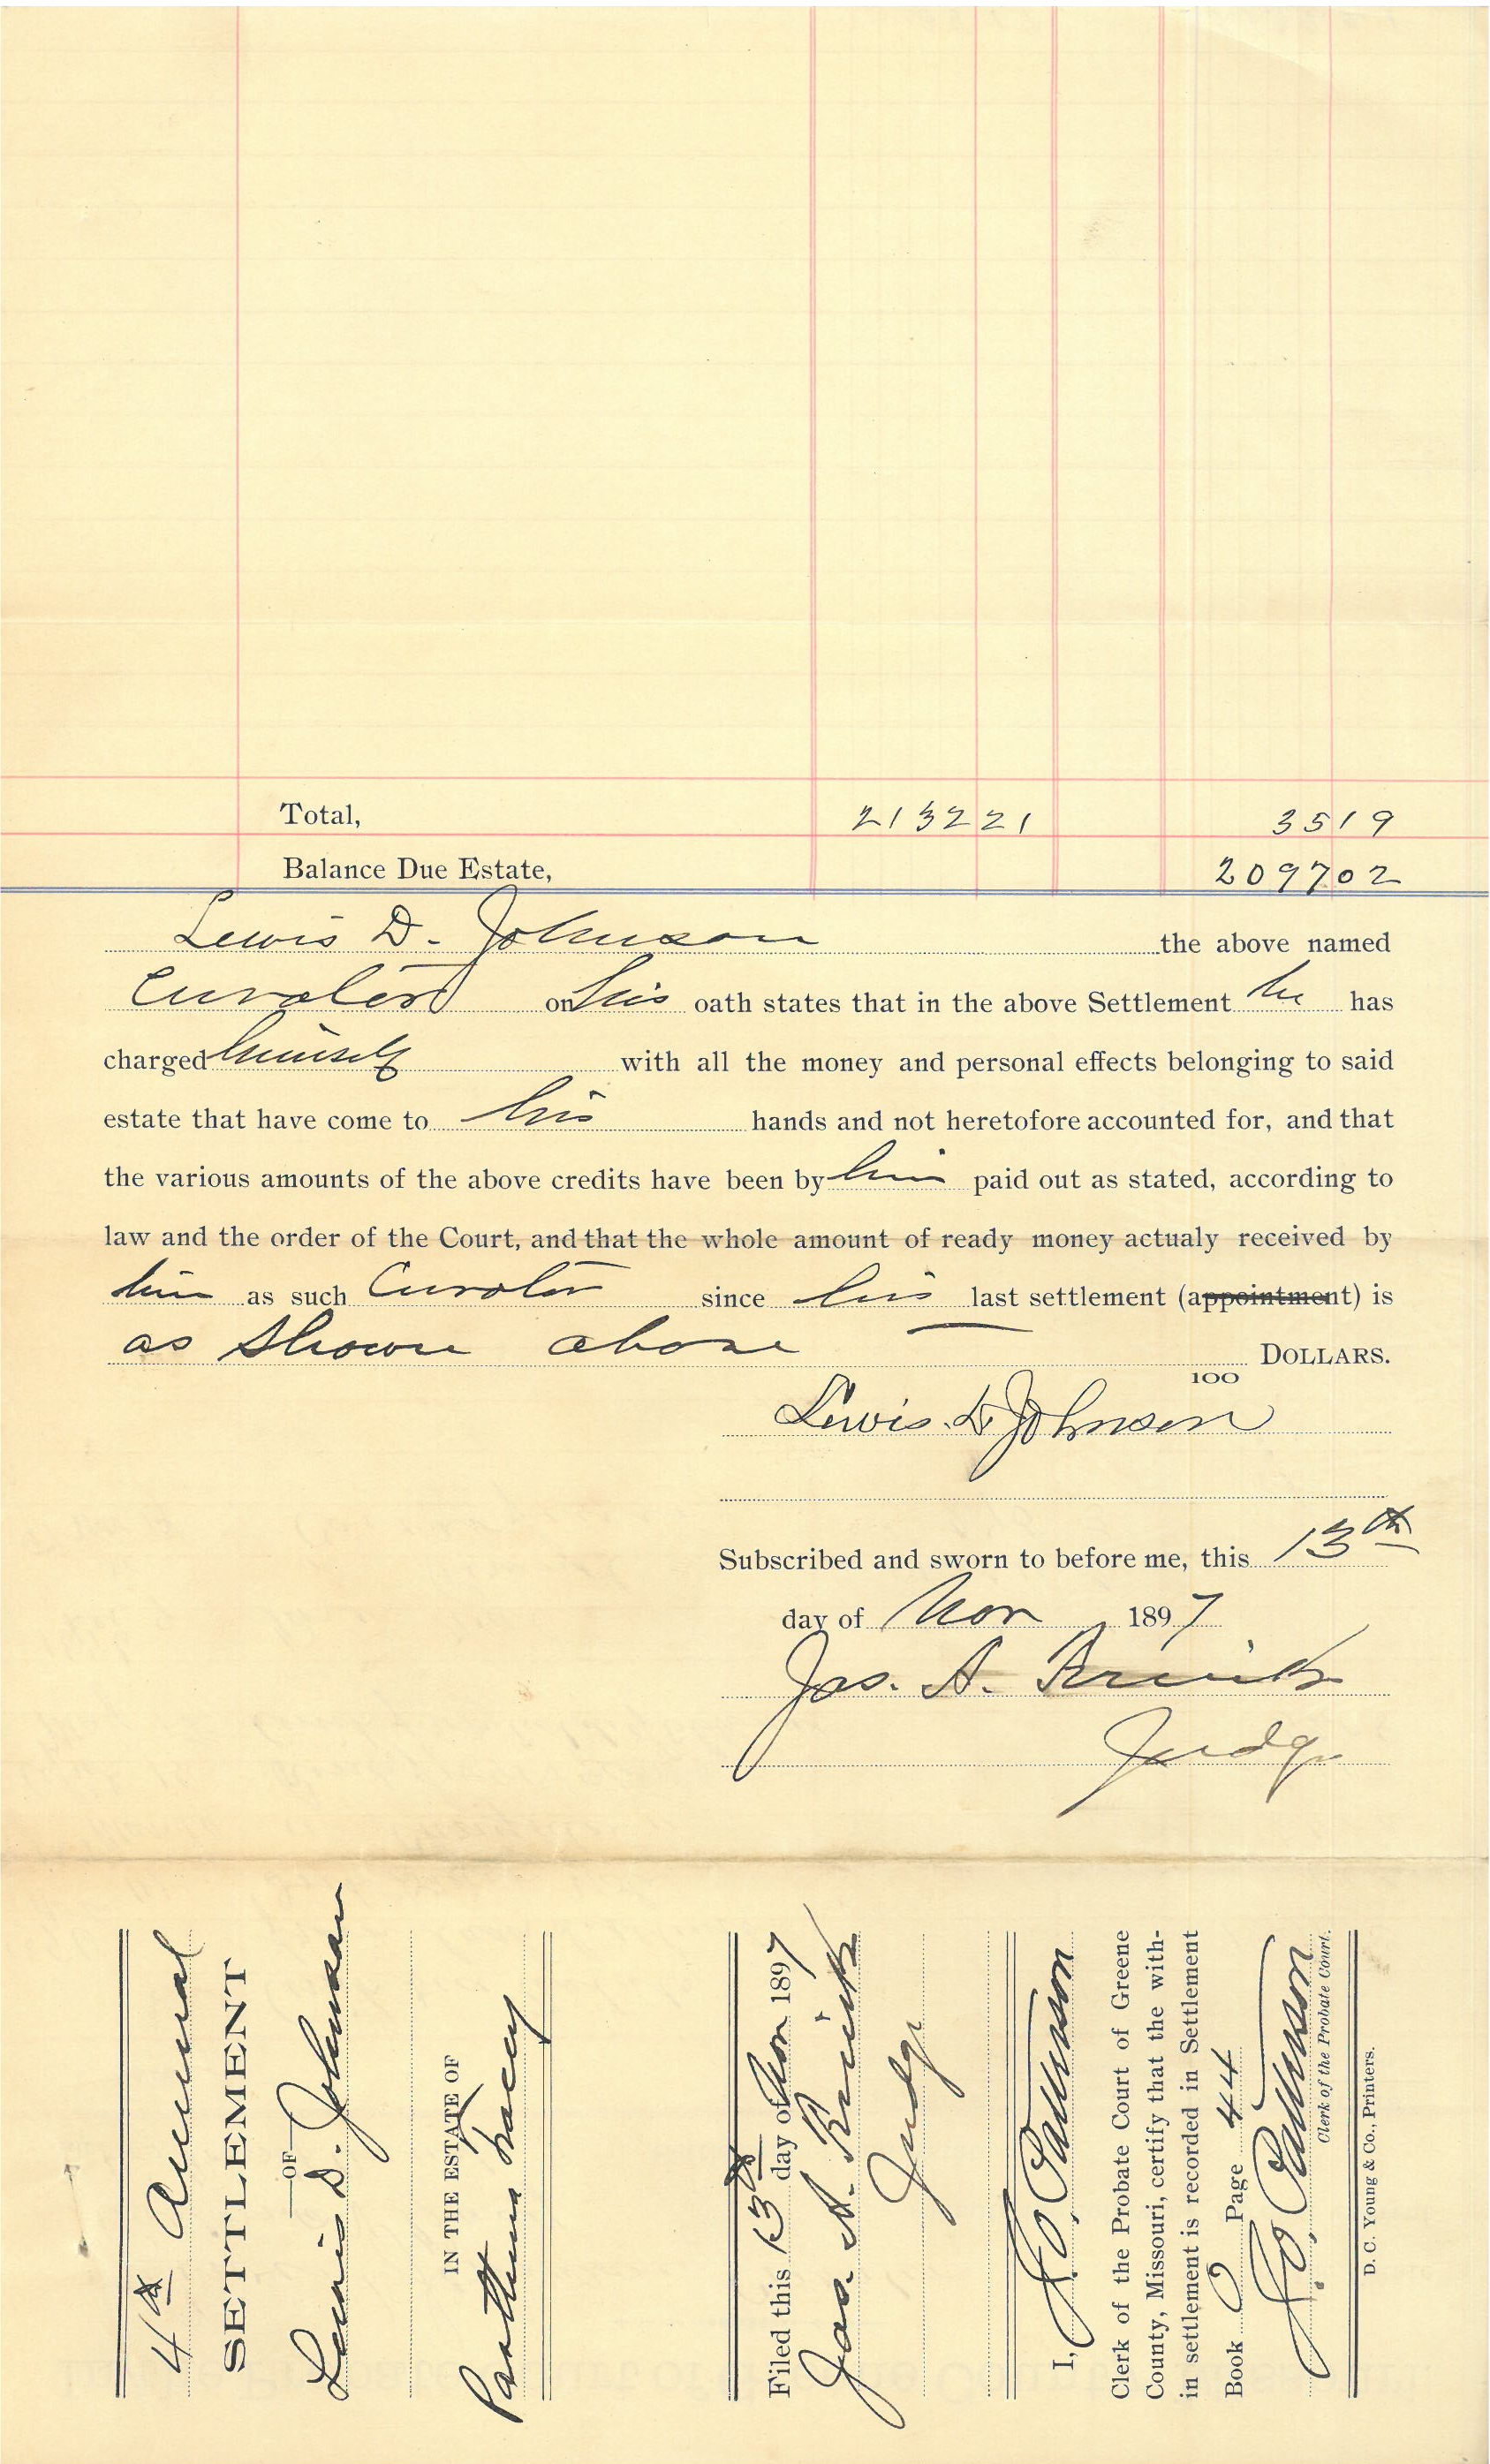 Total, 2132 21 35 19
Balance Due Estate, 2097 02
Lewis D. Johnson the above named
Curator on his oath states that in the above Settlement he has
charged himself with all the money and personal effects belonging to said
estate that have come to his hands and not heretofore accounted for, and that
the various amounts of the above credits have been by him paid out as stated, according to
law and the order of the Court, and that the whole amount of ready money actualy received by
him as such Curator since his last settlement (appointment) is
as shown above DOLLARS.
100
Lewis D Johnson
Subscribed and sworn to before me, this 13th
day of Nov 1897
Jas. A.
Judge
4th Annual
SETTLEMENT
—OF—
Lewis D. Johnson
IN THE ESTATE OF
Macey
Filed this 13th day of Nov 1897
Jas. A.
Judge
I,
Clerk of the Probate Court of Greene
County, Missouri, certify that the with-
in settlement is recorded in Settlement
Book Page 44
Clerk of the Probate Court.
D. C. Young & Co., Printers.